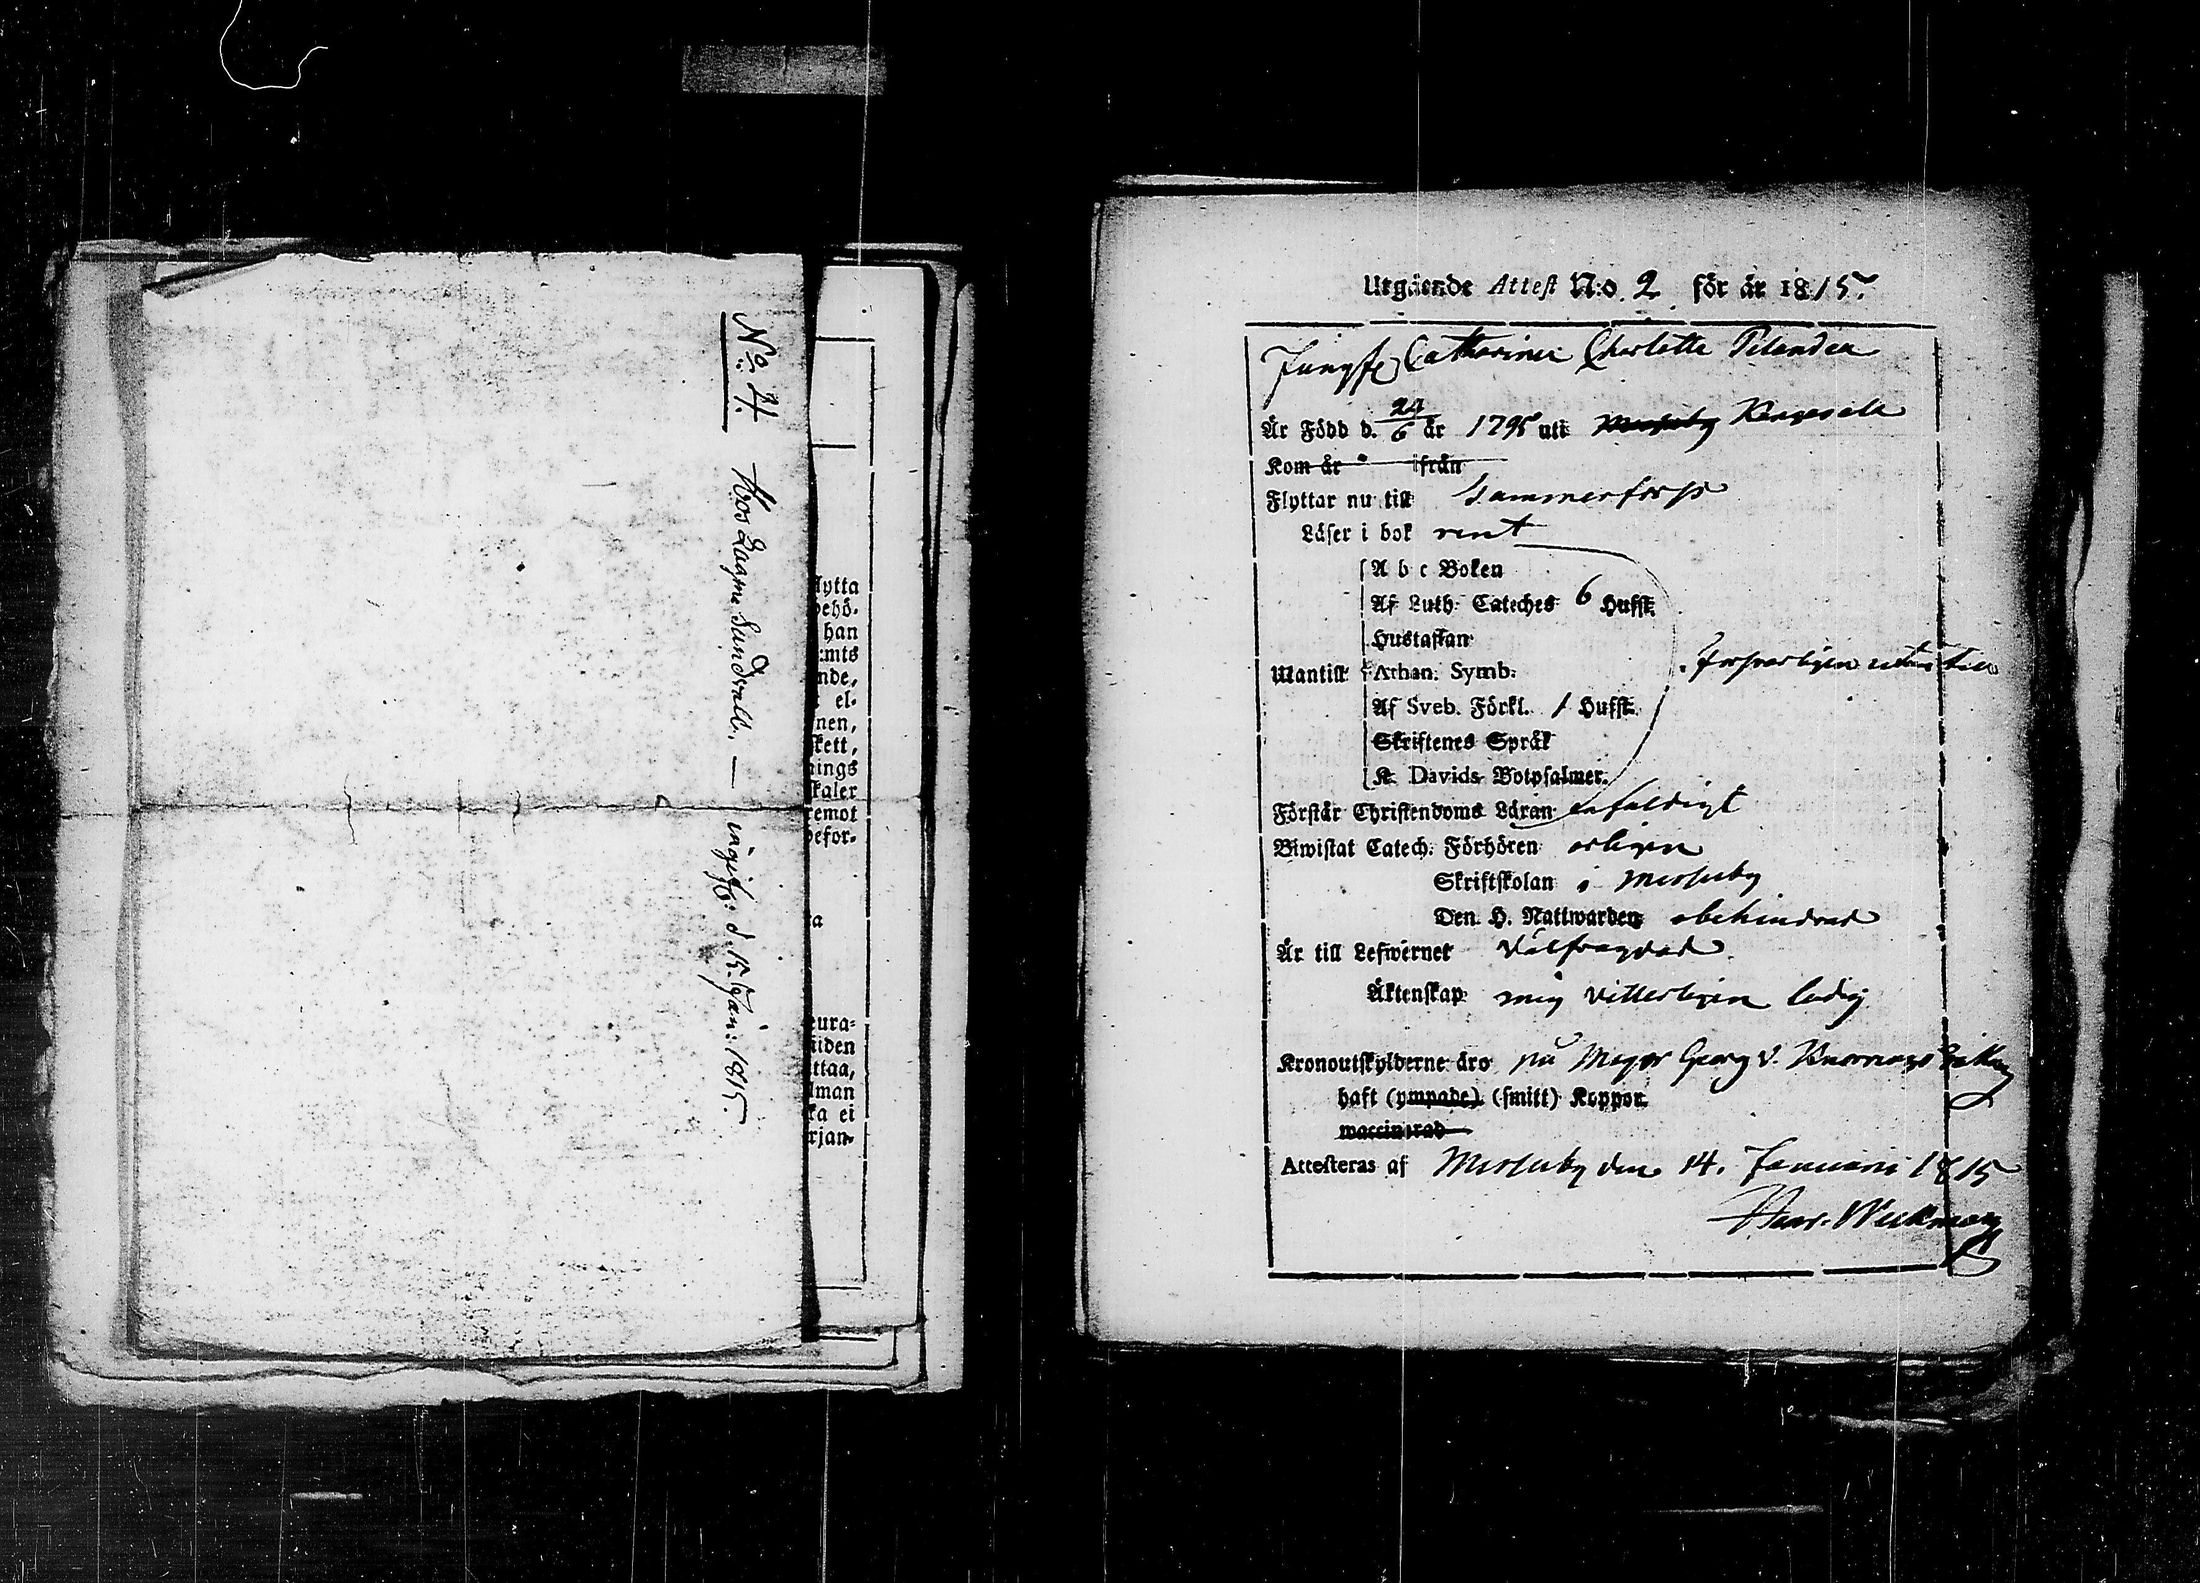 No. 4. Hos Lagm: Sundvall. — ingift: d. 15. Jan: 1815.
lytta
behö-
han
:mts
nde,
el-
nen,
skett,
nings
skaler
remot
befor-
ta
eura-
tiden
ttaa,
lman
ka ei
rjan-
Utgående Attest N:o. 2 för år 1815.
Jungfr Catharina Charlotta Pelander
Är Född d. 24/6 år 1795 uti Kangasala
Kom år ifrån
Flyttar nu till Tammerfors
Läser i bok rent
A b c Boken
Af Luth. Cateches 6 Hufst.
Hustaflan
Mantill Athan. Symb. försvarligen
Af Sveb. Förkl. 1 Hufst.
Skriftenes Språk
K. Davids Botpsalmer.
Förstår Christendoms Läran enfaldigt
Biwistat Catech. Förhören årligen
Skriftskolan i Messuby
Den H. Nattwarden obehindrad
Är till Lefwernet välfrägdad
Äktenskap mig vitterligen ledig
Kronoutskylderne äro på Major Georg v. Knorrings
haft (ympade) (smitt) Koppor.
waccinerad
Attesteras af Messuby den 14. Januarii 1815
Henr. Weckman